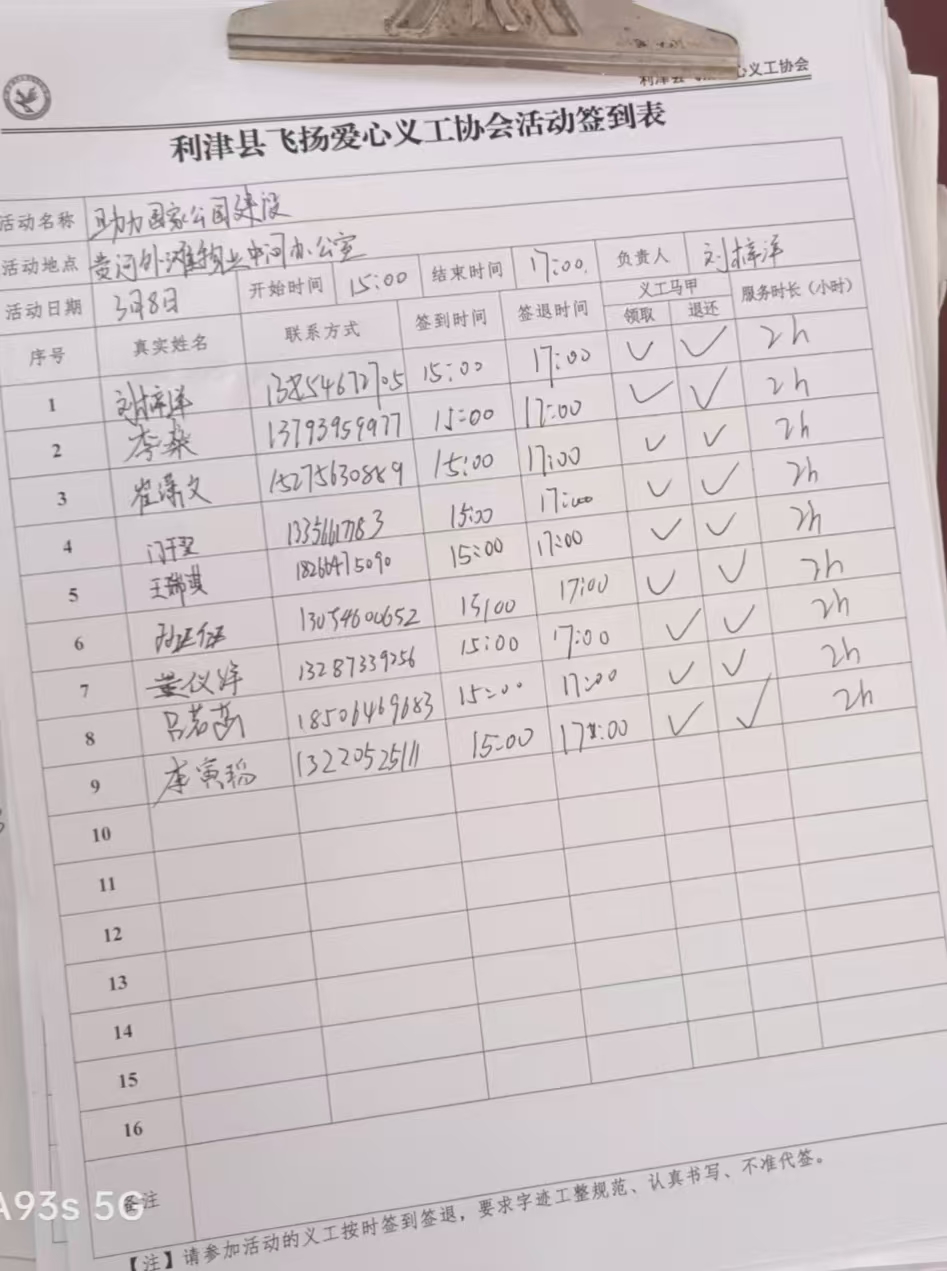 利津县飞扬爱心义工协会
利津县飞扬爱心义工协会活动签到表
活动名称 助力国家公园建设
活动地点 黄河外滩物业中间办公室
活动日期 3月8日 开始时间 15:00 结束时间 17:00. 负责人 刘梓洋
序号 真实姓名 联系方式 签到时间 签退时间 义工马甲 领取 退还 服务时长（小时）
1 刘梓洋 13854672705 15:00 17:00 ✓ ✓ 2h
2 李燊 13793959977 15:00 17:00 ✓ ✓ 2h
3 崔潇文 15275630889 15:00 17:00 ✓ ✓ 2h
4 1335661783 15:00 17:00 ✓ ✓ 2h
5 王瑞淇 18266475090 15:00 17:00 ✓ ✓ 2h
6 13054600652 15:00 17:00 ✓ ✓ 2h
7 董仪婷 13287339256 15:00 17:00 ✓ ✓ 2h
8 吕若菡 18506469683 15:00 17:00 ✓ ✓ 2h
9 李寅瑞 13220525111 15:00 17:00 ✓ ✓ 2h
10
11
12
13
14
15
16
备注
【注】请参加活动的义工按时签到签退，要求字迹工整规范、认真书写、不准代签。
A93s 5G